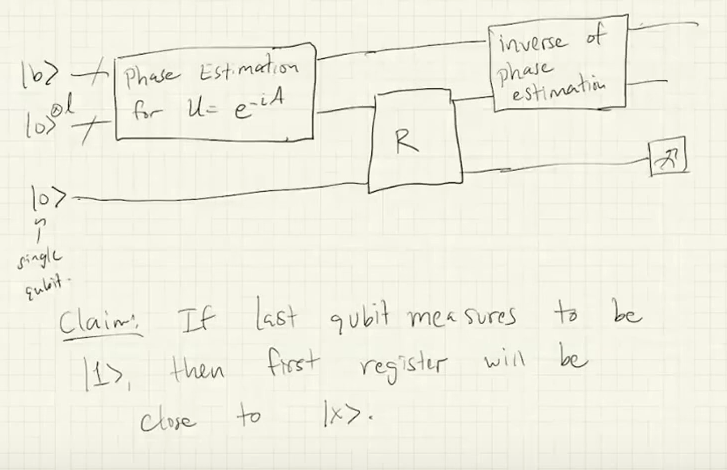 |b>
Phase Estimation
for U = e^{-iA}
|0>^{⊗l}
R
inverse of
phase
estimation
|0>
single
qubit.
Claim: If last qubit measures to be
|1>, then first register will be
close to |x>.